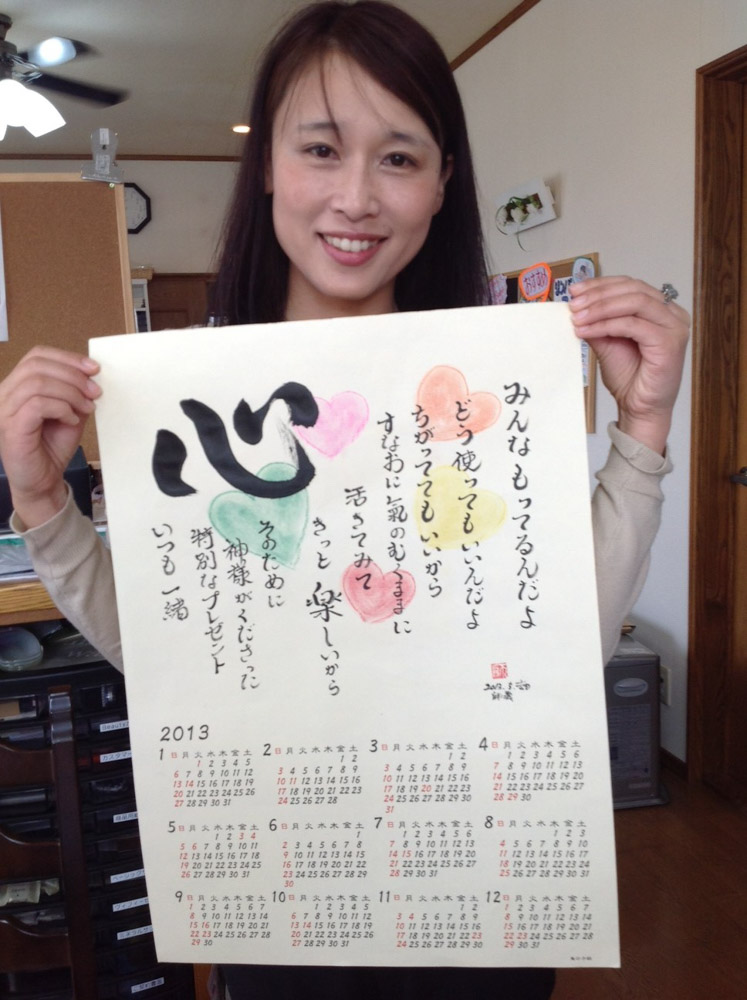 おすすめ
心
みんなもってるんだよ
どう使ってもいいんだよ
ちがっててもいいから
すなおに氣のむくままに
活きてみて
きっと楽しいから
そのために
神様がくださった
特別なプレゼント
いつも一緒
2013
1 日 月 火 水 木 金 土
1 2 3 4 5
6 7 8 9 10 11 12
13 14 15 16 17 18 19
20 21 22 23 24 25 26
27 28 29 30 31
2 日 月 火 水 木 金 土
1 2
3 4 5 6 7 8 9
10 11 12 13 14 15 16
17 18 19 20 21 22 23
24 25 26 27 28
3 日 月 火 水 木 金 土
1 2
3 4 5 6 7 8 9
10 11 12 13 14 15 16
17 18 19 20 21 22 23
24 25 26 27 28 29 30
31
4 日 月 火 水 木 金 土
1 2 3 4 5 6
7 8 9 10 11 12 13
14 15 16 17 18 19 20
21 22 23 24 25 26 27
28 29 30
5 日 月 火 水 木 金 土
1 2 3 4
5 6 7 8 9 10 11
12 13 14 15 16 17 18
19 20 21 22 23 24 25
26 27 28 29 30 31
6 日 月 火 水 木 金 土
1
2 3 4 5 6 7 8
9 10 11 12 13 14 15
16 17 18 19 20 21 22
23 24 25 26 27 28 29
30
7 日 月 火 水 木 金 土
1 2 3 4 5 6
7 8 9 10 11 12 13
14 15 16 17 18 19 20
21 22 23 24 25 26 27
28 29 30 31
8 日 月 火 水 木 金 土
1 2 3
4 5 6 7 8 9 10
11 12 13 14 15 16 17
18 19 20 21 22 23 24
25 26 27 28 29 30 31
9 日 月 火 水 木 金 土
1 2 3 4 5 6 7
8 9 10 11 12 13 14
15 16 17 18 19 20 21
22 23 24 25 26 27 28
29 30
10 日 月 火 水 木 金 土
1 2 3 4 5
6 7 8 9 10 11 12
13 14 15 16 17 18 19
20 21 22 23 24 25 26
27 28 29 30 31
11 日 月 火 水 木 金 土
1 2
3 4 5 6 7 8 9
10 11 12 13 14 15 16
17 18 19 20 21 22 23
24 25 26 27 28 29 30
12 日 月 火 水 木 金 土
1 2 3 4 5 6 7
8 9 10 11 12 13 14
15 16 17 18 19 20 21
22 23 24 25 26 27 28
29 30 31